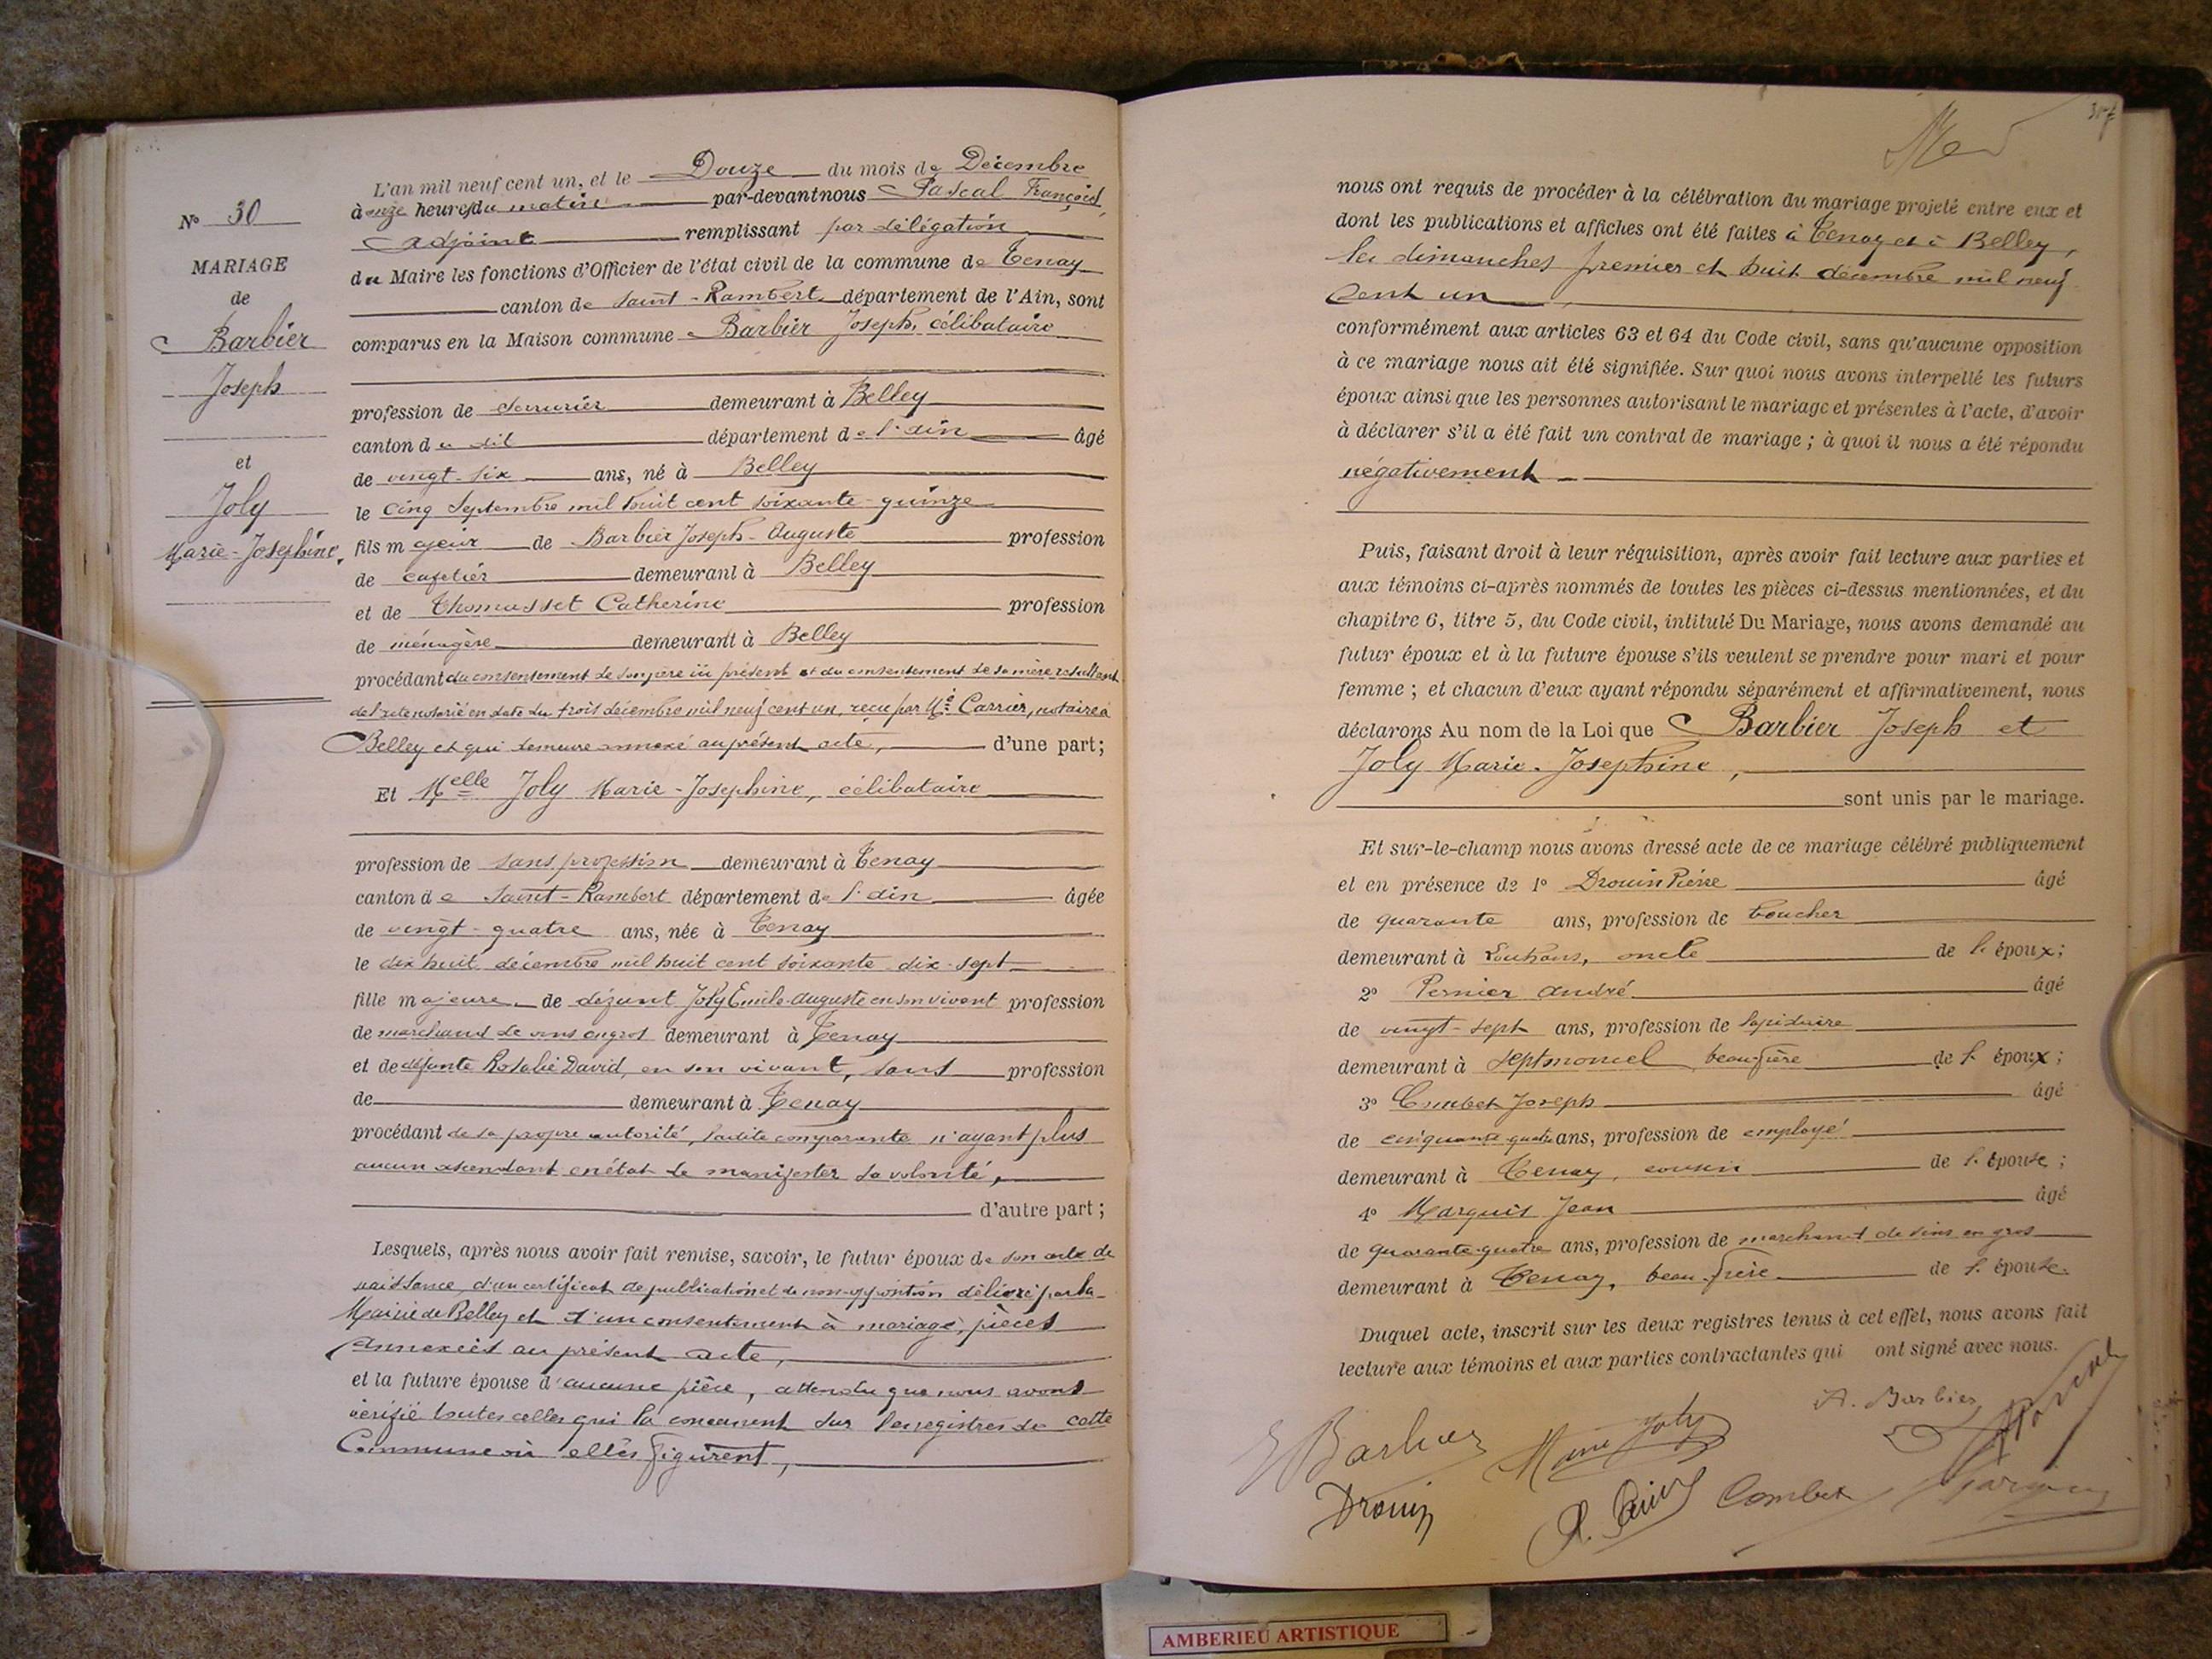 N° 30
MARIAGE
de
Barbier
Joseph
et
Joly
Marie-Josephine.
L'an mil neuf cent un, et le Douze du mois de Décembre
à onze heures du matin par-devant nous Pascal François,
adjoint remplissant par délégation
du Maire les fonctions d'Officier de l'état civil de la commune de Tenay
canton de Saint-Rambert département de l'Ain, sont
comparus en la Maison commune Barbier Joseph, célibataire
profession de serrurier demeurant à Belley
canton du dit département de l'ain âgé
de vingt-six ans, né à Belley
le cinq Septembre mil huit cent soixante-quinze
fils majeur de Barbier Joseph-Auguste profession
de cafetier demeurant à Belley
et de Thomasset Catherine profession
de ménagère demeurant à Belley
procédant du consentement de son père ici présent et du consentement de sa mère résultant
de l'acte notarié en date du trois décembre mil neuf cent un, reçu par Me Carrier, notaire à
Belley et qui demeure annexé au présent acte, d'une part;
Et Melle Joly Marie-Josephine, célibataire
profession de sans profession demeurant à Tenay
canton de Saint-Rambert département de l'ain âgée
de vingt-quatre ans, née à Tenay
le dix huit décembre mil huit cent soixante-dix-sept
fille majeure de défunt Joly Emile-Auguste en son vivant profession
de marchand de vins en gros demeurant à Tenay
et de défunte Rosalie David, en son vivant, sans profession
de demeurant à Tenay
procédant de sa propre autorité, ladite comparante n'ayant plus
aucun ascendant en état de manifester sa volonté,
d'autre part;
Lesquels, après nous avoir fait remise, savoir, le futur époux de son acte de
naissance, d'un certificat de publication et de non-opposition délivré par la
Mairie de Belley et d'un consentement à mariage, pièces
annexées au présent acte,
et la future épouse d'aucune pièce, attendu que nous avons
vérifié toutes celles qui la concernent sur les registres de cette
Commune où elles figurent,
nous ont requis de procéder à la célébration du mariage projeté entre eux et
dont les publications et affiches ont été faites à Tenay et à Belley,
les dimanches premier et huit décembre mil neuf
cent un
conformément aux articles 63 et 64 du Code civil, sans qu'aucune opposition
à ce mariage nous ait été signifiée. Sur quoi nous avons interpellé les futurs
époux ainsi que les personnes autorisant le mariage et présentes à l'acte, d'avoir
à déclarer s'il a été fait un contrat de mariage; à quoi il nous a été répondu
négativement
Puis, faisant droit à leur réquisition, après avoir fait lecture aux parties et
aux témoins ci-après nommés de toutes les pièces ci-dessus mentionnées, et du
chapitre 6, titre 5, du Code civil, intitulé Du Mariage, nous avons demandé au
futur époux et à la future épouse s'ils veulent se prendre pour mari et pour
femme; et chacun d'eux ayant répondu séparément et affirmativement, nous
déclarons Au nom de la Loi que Barbier Joseph et
Joly Marie-Josephine,
sont unis par le mariage.
Et sur-le-champ nous avons dressé acte de ce mariage célébré publiquement
et en présence de 1° Drouin Pierre âgé
de quarante ans, profession de boucher
demeurant à Louhans, oncle de l'époux;
2° Pernier André âgé
de vingt-sept ans, profession de lapidaire
demeurant à Septmoncel beau-frère de l'époux;
3° Combet Joseph âgé
de cinquante-quatre ans, profession de employé
demeurant à Tenay, cousin de l'épouse;
4° Marquis Jean âgé
de quarante-quatre ans, profession de marchand de vins en gros
demeurant à Tenay, beau-frère de l'épouse.
Duquel acte, inscrit sur les deux registres tenus à cet effet, nous avons fait
lecture aux témoins et aux parties contractantes qui ont signé avec nous.
A. Barbier
Barbier Marie Joly
Drouin Combet Marquis
AMBERIEU ARTISTIQUE